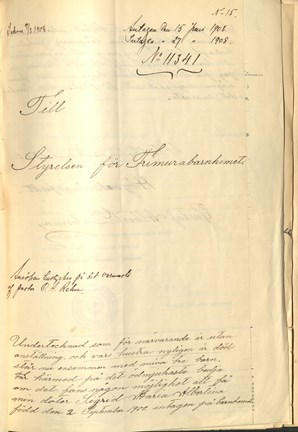 No 15.
1/3 1908.
Antagen den 15 Juni 1908.
27 1908.
No 11341
Till
Styrelsen för Frimurarebarnhemet.
Ansökan på det varmaste
af O. Rehn
Undertecknad som för närvarande är utan
anställning, och vars hustru nyligen är död
står nu ensammen med mina tre barn,
får härmed på det ödmjukaste bedja
om det finns någon möjlighet att få
min doter Sigrid Maria Albertina
född den 2 September 1900 intagen på barnhemmet